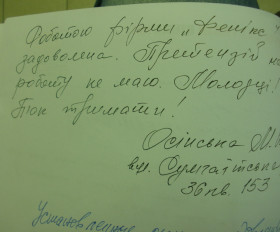 Роботою фірми „Фенікс"
задоволена. Претензій на
роботу не маю. Молодці!
Так тримати!
Осінська М.
вул. Сумгаїтськ
36 кв. 153
Установленные